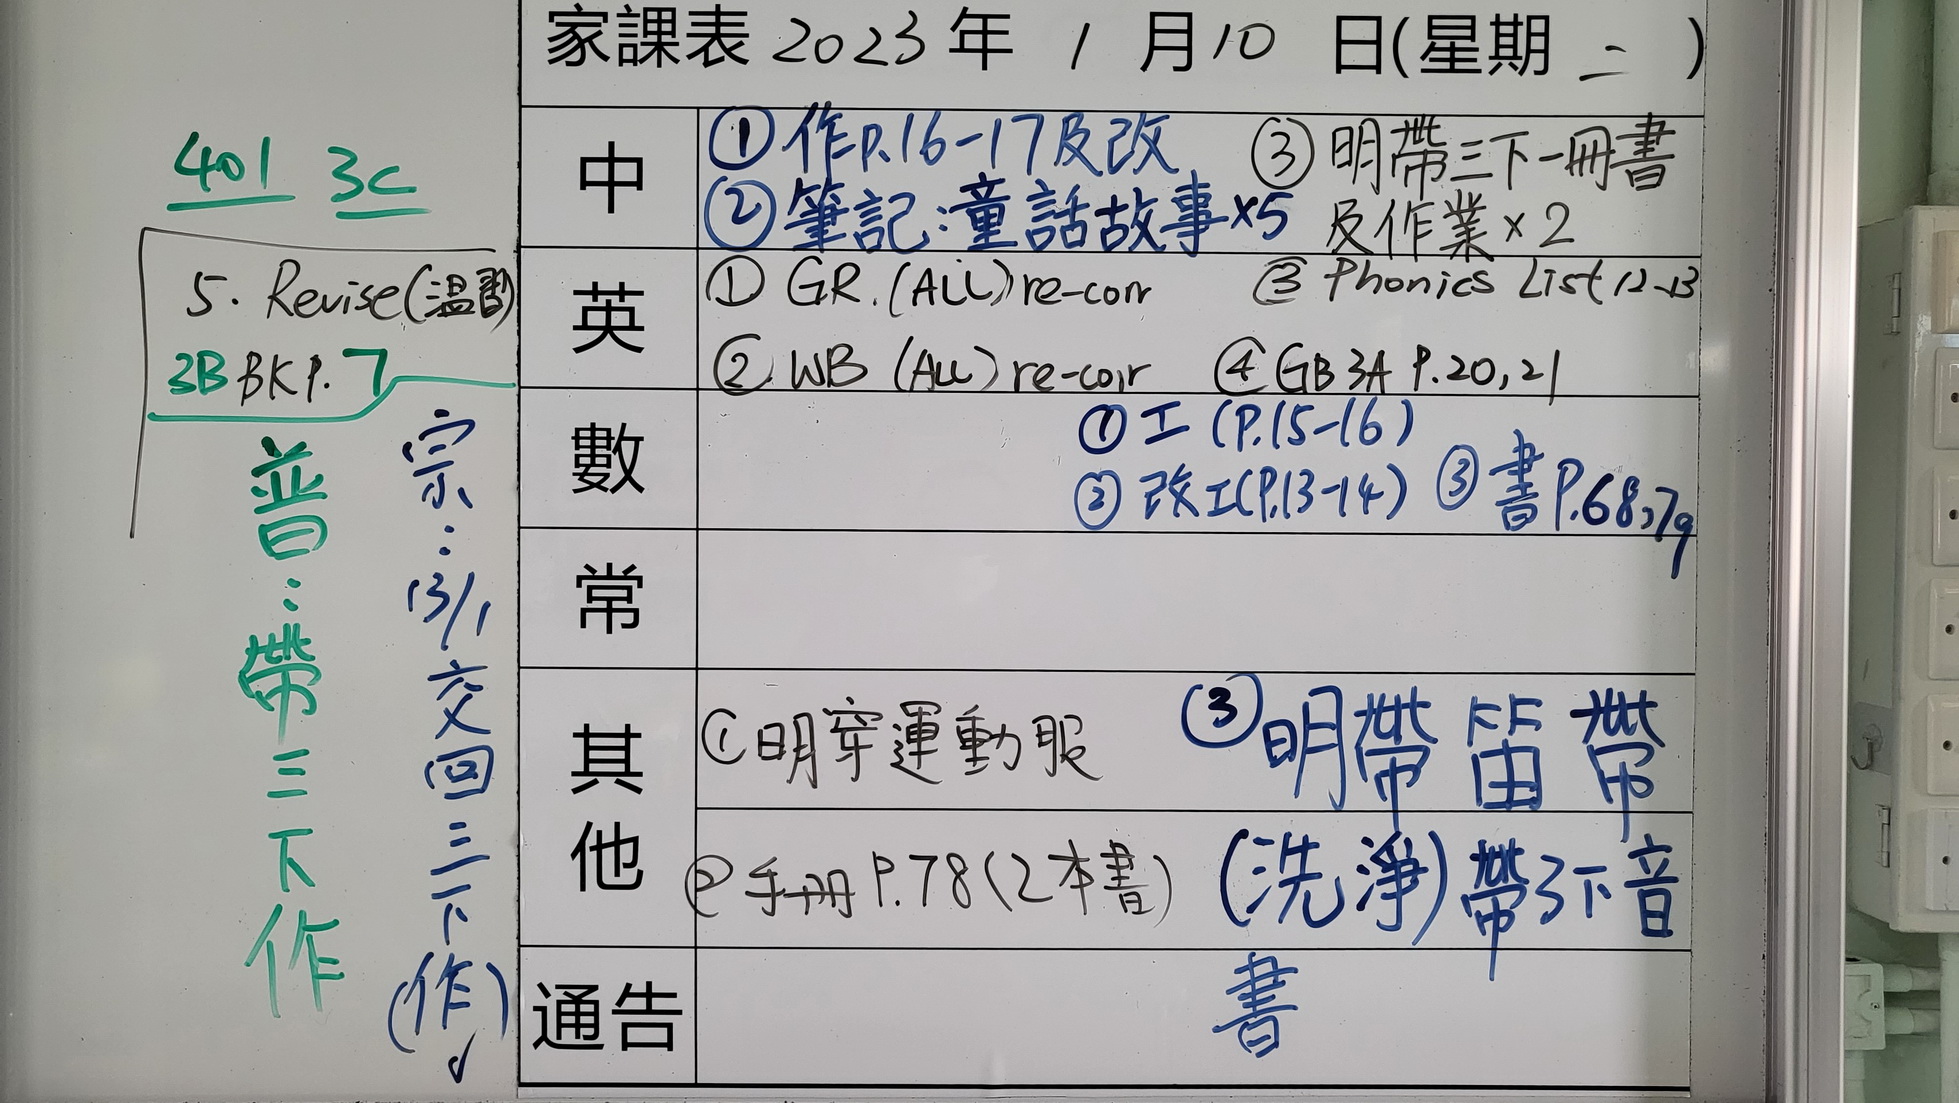 家課表 2023 年 1 月 10 日(星期 二 )
401 3C
中
① 作P.16-17及改
② 筆記:童話故事×5
③ 明帶三下一冊書
及作業×2
英
① GR.(ALL) re-corr
② WB (ALL) re-corr
③ Phonics List 12-13
④ GB 3A P.20,21
5. Revise(温習)
3B BK P.7
數
① 工 (P.15-16)
② 改工(P.13-14) ③ 書P.68,79
常
其他
① 明穿運動服
② 手冊 P.78(2本書)
③ 明帶笛 帶
(洗淨) 帶3下音
書
通告
普:帶三下作
宗:13/1交回三下(作)✓